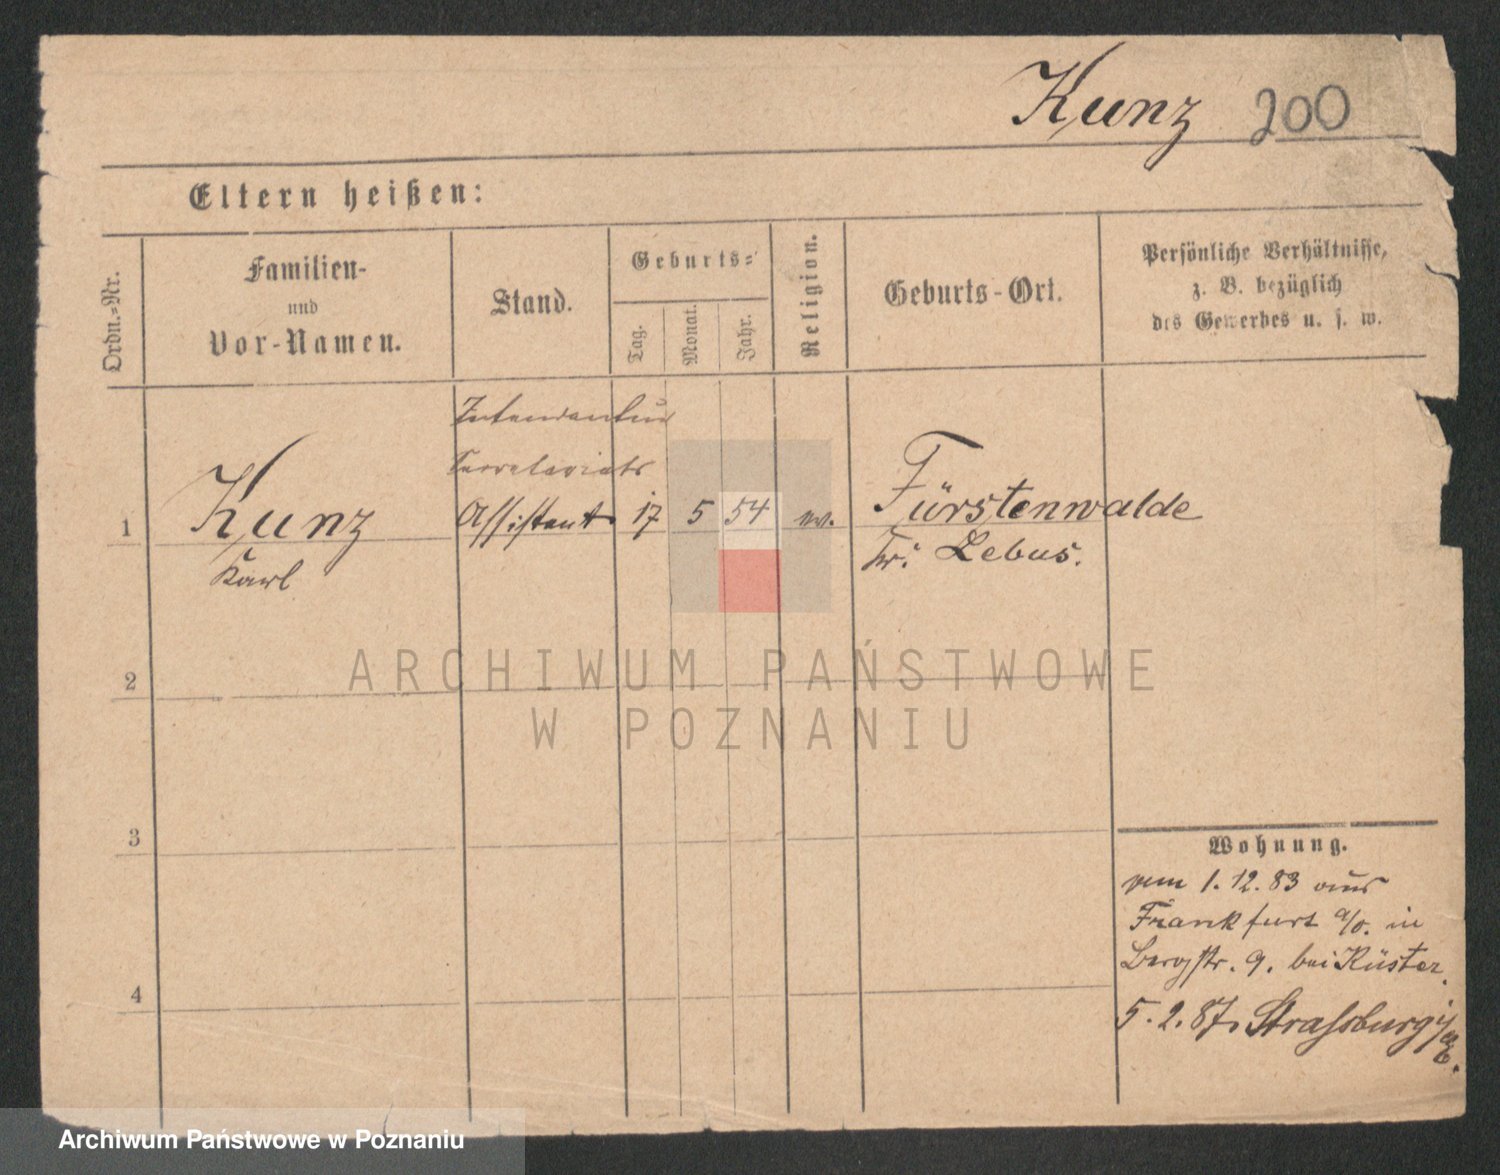 Kunz 200
Eltern heißen:
Ordn.-Nr.
Familien-
und
Vor-Namen.
Stand.
Geburts-
Tag.
Monat.
Jahr.
Religion.
Geburts-Ort.
Persönliche Verhältnisse,
z. B. bezüglich
des Gewerbes u. s. w.
Intendantur
Secretariats
1 Kunz Assistent 17 5 54 ev. Fürstenwalde
Karl Kr. Lebus.
2
3
4
Wohnung.
vom 1.12.83 aus
Frankfurt a/O. in
Bergstr. 9. bei Küster.
5.2.87. Strassburg i/E.
ARCHIWUM PAŃSTWOWE
W POZNANIU
Archiwum Państwowe w Poznaniu